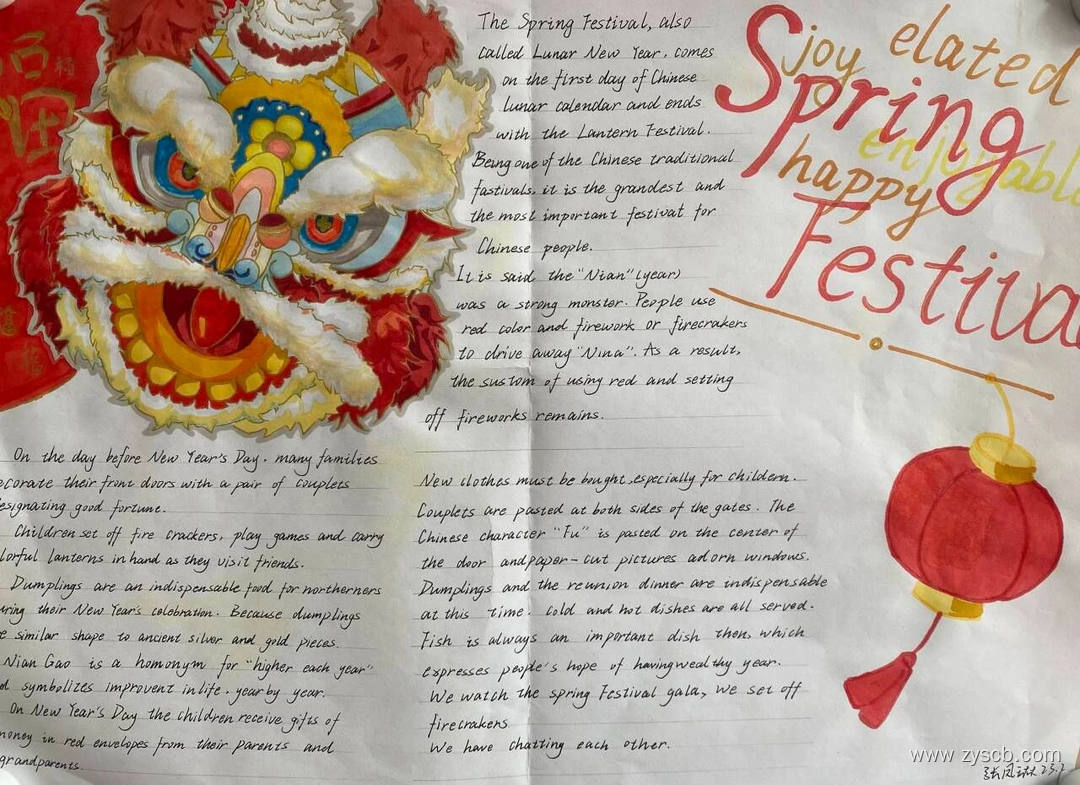 The Spring Festival, also
called Lunar New Year, comes
on the first day of Chinese
lunar calendar and ends
with the Lantern Festival.
Being one of the Chinese traditional
fastivals, it is the grandest and
the most important festivat for
Chinese people.
It is said the "Nian" (year)
was a strong monster. People use
red color and firework or firecrakers
to drive away "Nina". As a result,
the sustom of using red and setting
off fireworks remains.
joy elated
Spring
enjoyable
happy
Festival
福
On the day before New Year's Day. many families
ecorate their front doors with a pair of couplets
esignating good fortune.
Children set off fire crackers, play games and carry
lorful lanterns in hand as they visit friends.
Dumplings are an indispensable food for northerners
uring their New Year's celebration. Because dumplings
e similar shape to ancient silver and gold pieces.
Nian Gao is a homonym for "higher each year"
d symbolizes improvent in life. year by year.
On New Year's Day the children receive gifts of
money in red envelopes from their parents and
grandparents.
New clothes must be bought, especially for childern.
Couplets are pasted at both sides of the gates. The
Chinese character "Fu" is pasted on the center of
the door and paper-cut pictures adorn windows.
Dumplings and the reunion dinner are indispensable
at this time. Cold and hot dishes are all served.
Fish is always an important dish then, which
expresses people's hope of having wealthy year.
We watch the spring Festival gala, We set off
firecrakers
We have chatting each other.
www.zyscb.com